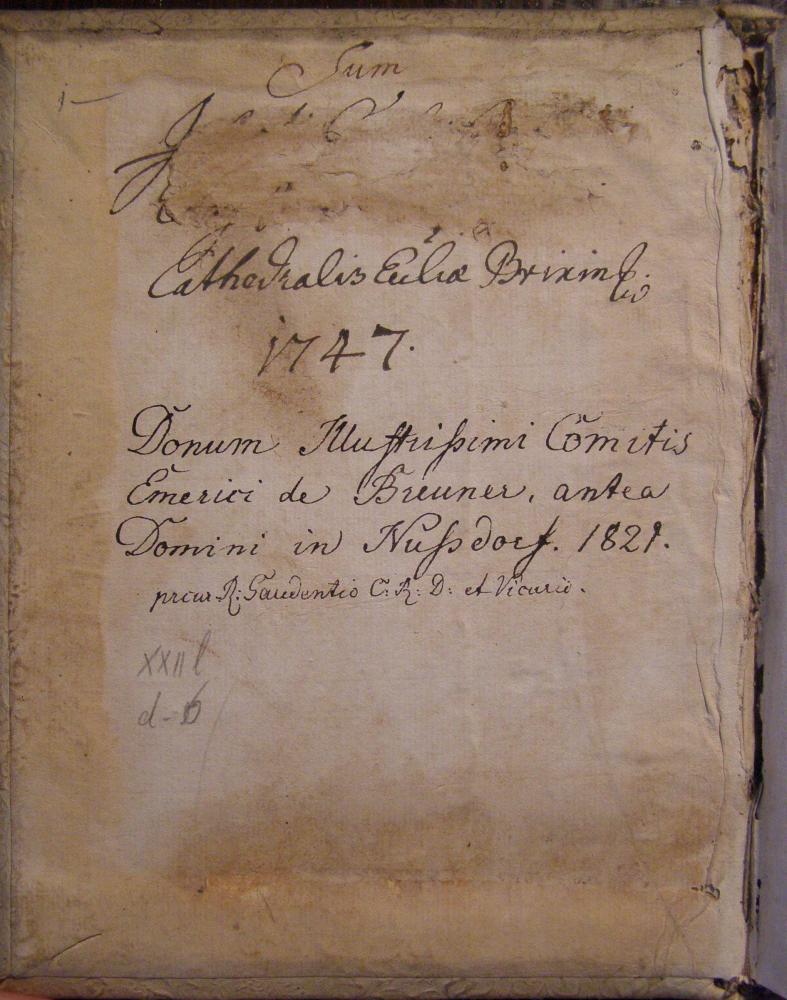 Sum
Cathedralis Eccliæ Brixinẽ.
1747.
Donum Illustrißimi Comitis
Emerici de Breuner, antea
Domini in Nußdorf. 1821.
R: Gaudentio C: R: D: et Vicario.
XXII l
d-6